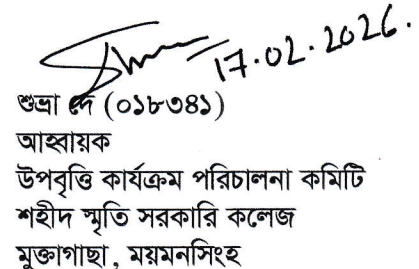 17.02.2026.
শুভ্রা দে (০১৮৩৪১)
আহবায়ক
উপবৃত্তি কার্যক্রম পরিচালনা কমিটি
শহীদ স্মৃতি সরকারি কলেজ
মুক্তাগাছা, ময়মনসিংহ